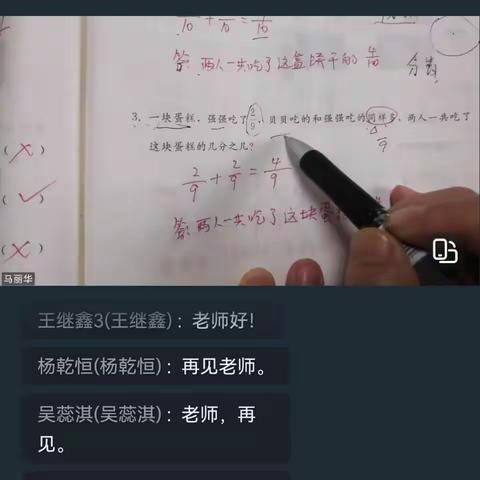 10 + 10 = 10
答：两人一共吃了这盒饼干的4/10
分数
3. 一块蛋糕，强强吃了2/9，贝贝吃的和强强吃的同样多，两人一共吃了
9
这块蛋糕的几分之几？
(×)
2/9 + 2/9 = 4/9
(✓)
答：两人一共吃了这块蛋
(×)
马丽华
王继鑫3(王继鑫)：老师好!
杨乾恒(杨乾恒)：再见老师。
吴蕊淇(吴蕊淇)：老师，再
见。